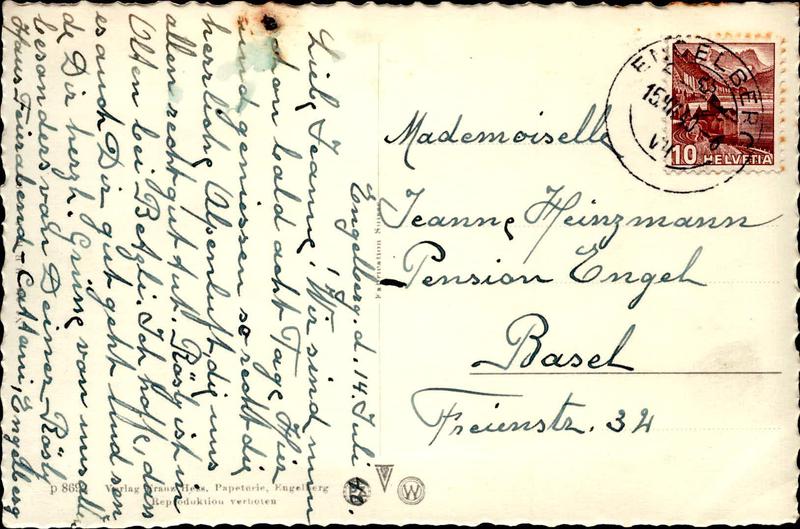 Engelberg. d. 14. Juli 40.
Liebe Jeanne! Wir sind nun
schon bald acht Tage hier
und geniessen so recht die
herrliche Alpenluft, die uns
allen recht gut tut. Rösly ist in
Olten bei Betzli. Ich hoffe, dass
es auch Dir gut geht. Und sende
Dir herzl. Grüsse von uns allen
besonders von Deiner Rösly
Haus Feierabend-Cattani, Engelberg
Mademoiselle
Jeanne Heinzmann
Pension Engel
Basel
Freienstr. 32
ENGELBERG
10 HELVETIA
p 869
Verlag Franz Hess, Papeterie, Engelberg
Reproduktion verboten
W